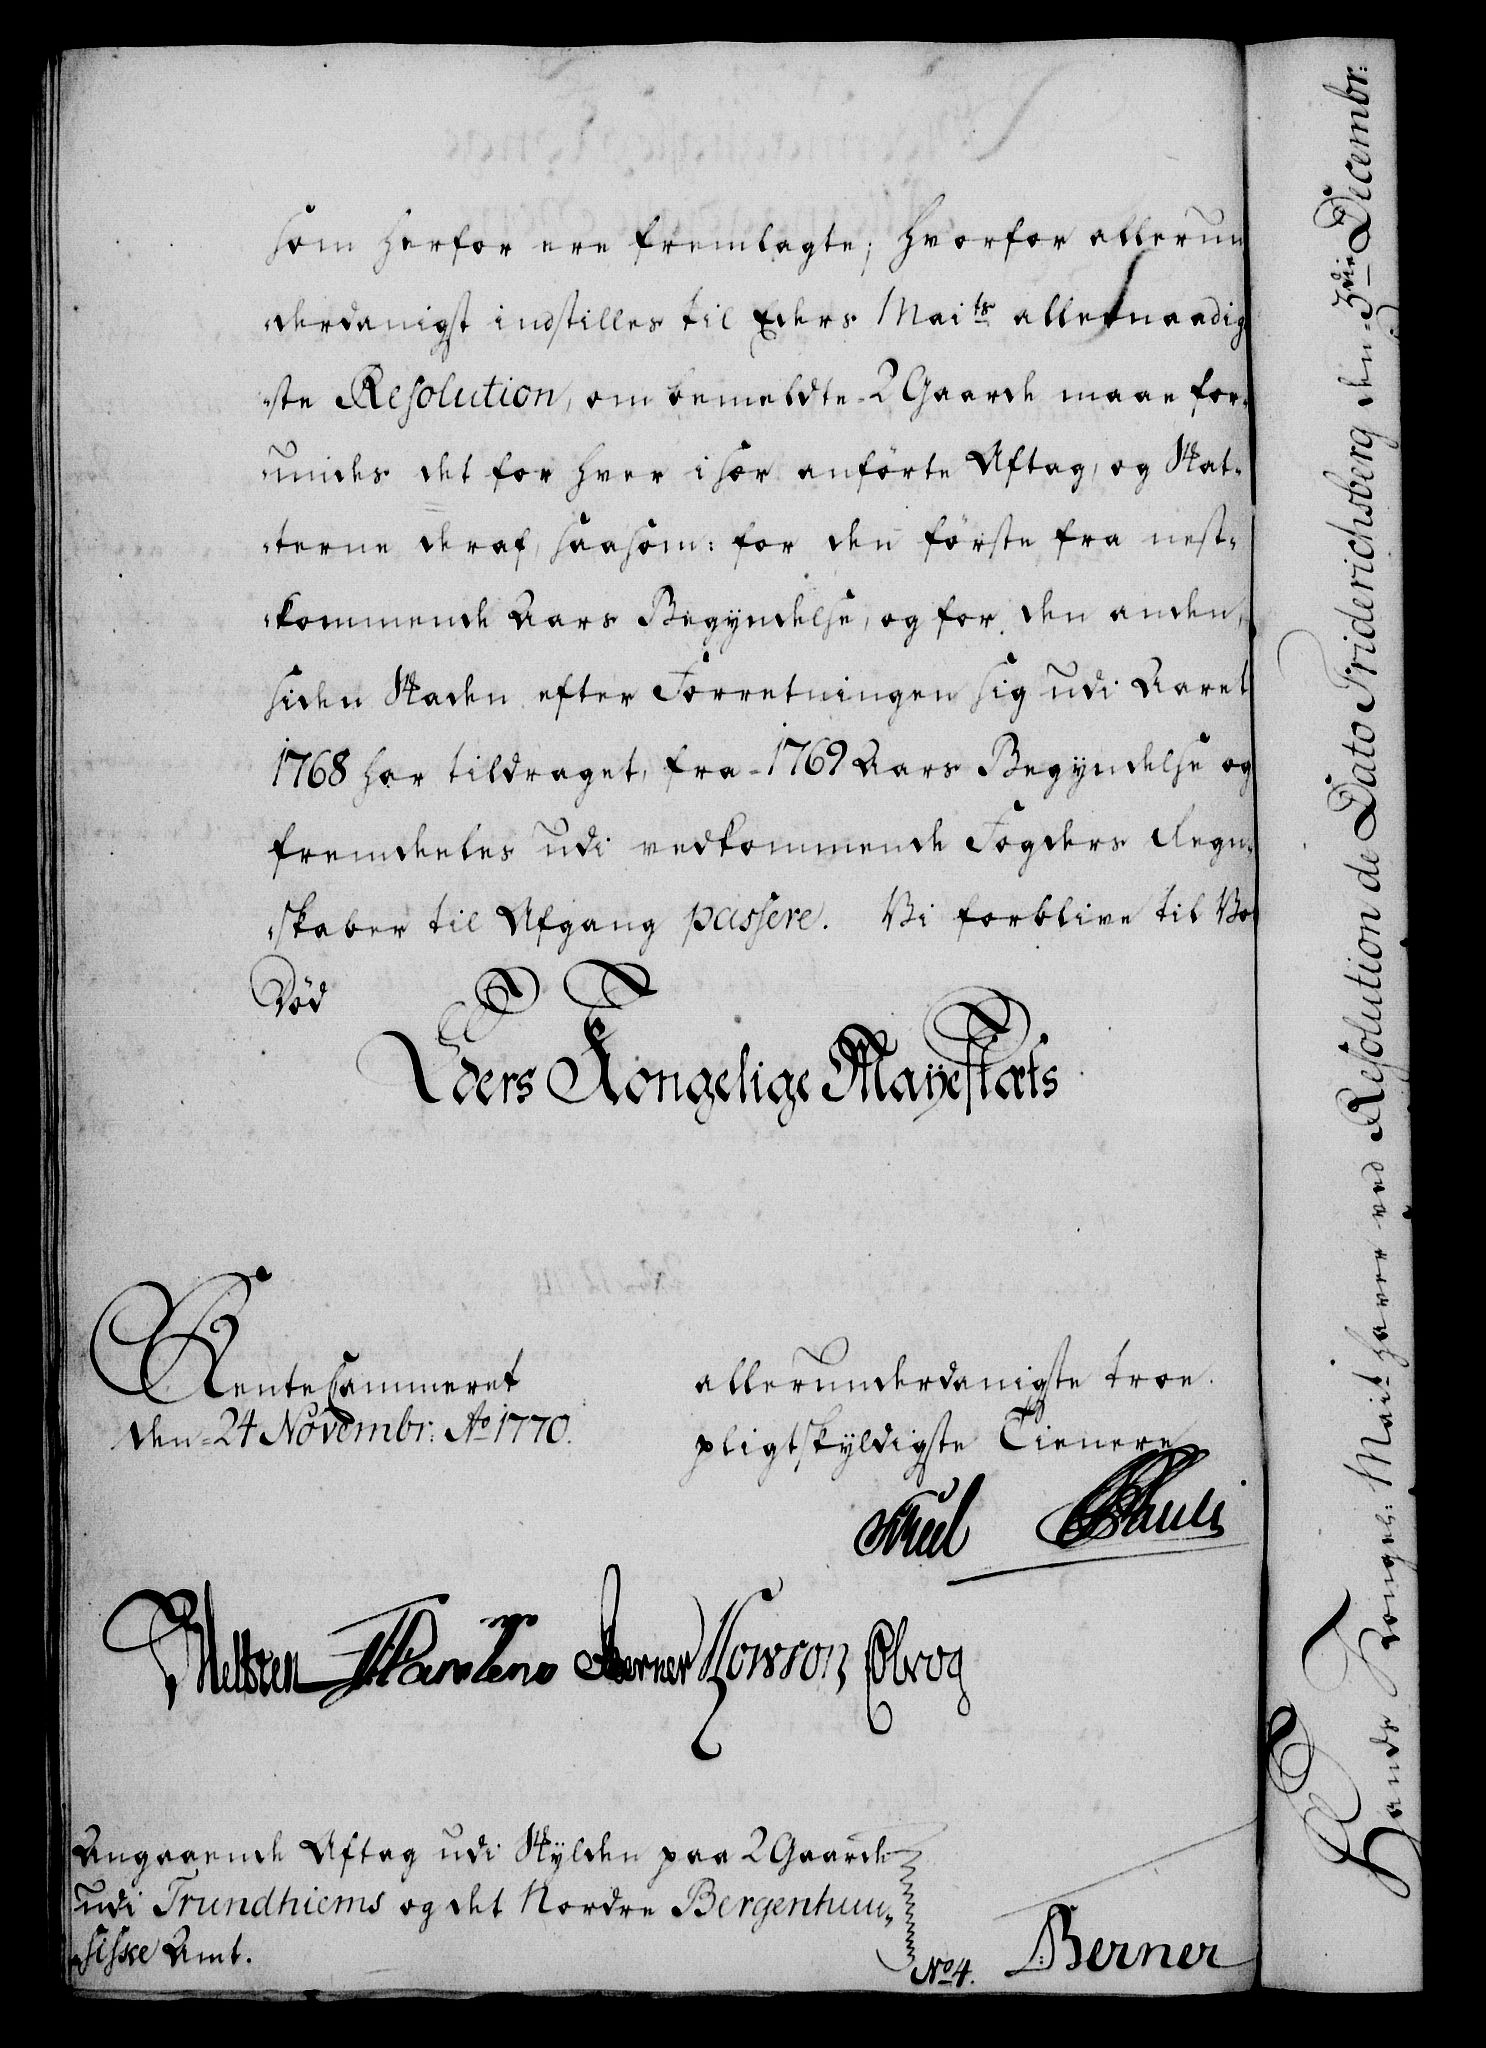 som herfor ere fremlagte; hvorfor allerun
derdanigst indstilles til Eders Mai<sup>ts</sup> allernaadig
ste Resolution, om bemeldte 2 Gaarde maae for-
undes det for hver især anførte Aftag, og Skat-
terne deraf, saasom: for den første fra nest-
kommende Aars Begyndelse, og for den anden,
siden Skaden efter Forretningen sig udi Aaret
1768 har tildraget, fra 1769 Aars Begyndelse og
fremdeeles udi vedkommende Fogders Regn-
skaber til Afgang passere. Vi forblive til Vor
Död
Eders Kongelige Mayestæts
RenteCammeret
den 24 Novembr: A<sup>o</sup> 1770.
allerunderdanigste troe
pligtskyldigste Tienere
Pauli
Berner Kowson
Angaaende Aftag udi Skylden paa 2 Gaarde
udi Trundhiems og det Nordre Bergenhuu-
siske Amt.
No 4.
Berner
Hands Kongel: Mai<sup>t</sup> haver ved Resolution de Dato Friderichsberg den 3<sup>die</sup> Decembr: